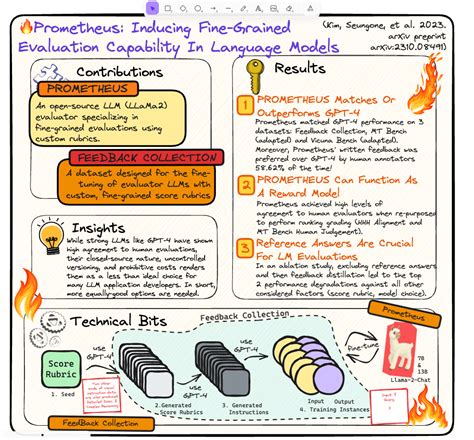 Prometheus: Inducing Fine-Grained
Evaluation Capability In Language Models
(Kim, Seungone, et al. 2023.
arXiv preprint
arXiv:2310.08491)
Contributions
PROMETHEUS
An open-source LLM (LLaMa2)
evaluator specializing in
fine-grained evaluations using
custom rubrics.
FEEDBACK COLLECTION
A dataset designed for the fine-
tuning of evaluator LLMs with
custom, fine-grained score rubrics
Insights
While strong LLMs like GPT-4 have shown
high agreement to human evaluations,
their closed-source nature, uncontrolled
versioning, and prohibitive costs renders
them as a less than ideal choice for
many LLM application developers. In short,
more equally-good options are needed.
Results
1 PROMETHEUS Matches Or
Outperforms GPT-4
Prometheus matched GPT-4 performance on 3
datasets: Feedback Collection, MT Bench
(adapted) and Vicuna Bench (adapted).
Moreover, Prometheus' written feedback was
preferred over GPT-4 by human annotators
58.62% of the time!
2 PROMETHEUS Can Function As
A Reward Model
Prometheus achieved high levels of
agreement to human evaluators when re-purposed
to perform ranking grading (HHH Alignment and
MT Bench Human Judgement).
3 Reference Answers Are Crucial
For LM Evaluations
In an ablation study, excluding reference answers
and then feedback distillation led to the top
2 performance degradations against all other
considered factors (score rubric, model choice).
Technical Bits
Feedback Collection
Prometheus
Score
Rubric
1. Seed
use
GPT-4
2.Generated
Score Rubrics
use
GPT-4
3. Generated
Instructions
use
GPT-4
Input Output
4. Training Instances
fine-tune
7B &
13B
Llama-2-Chat
Feedback Collection